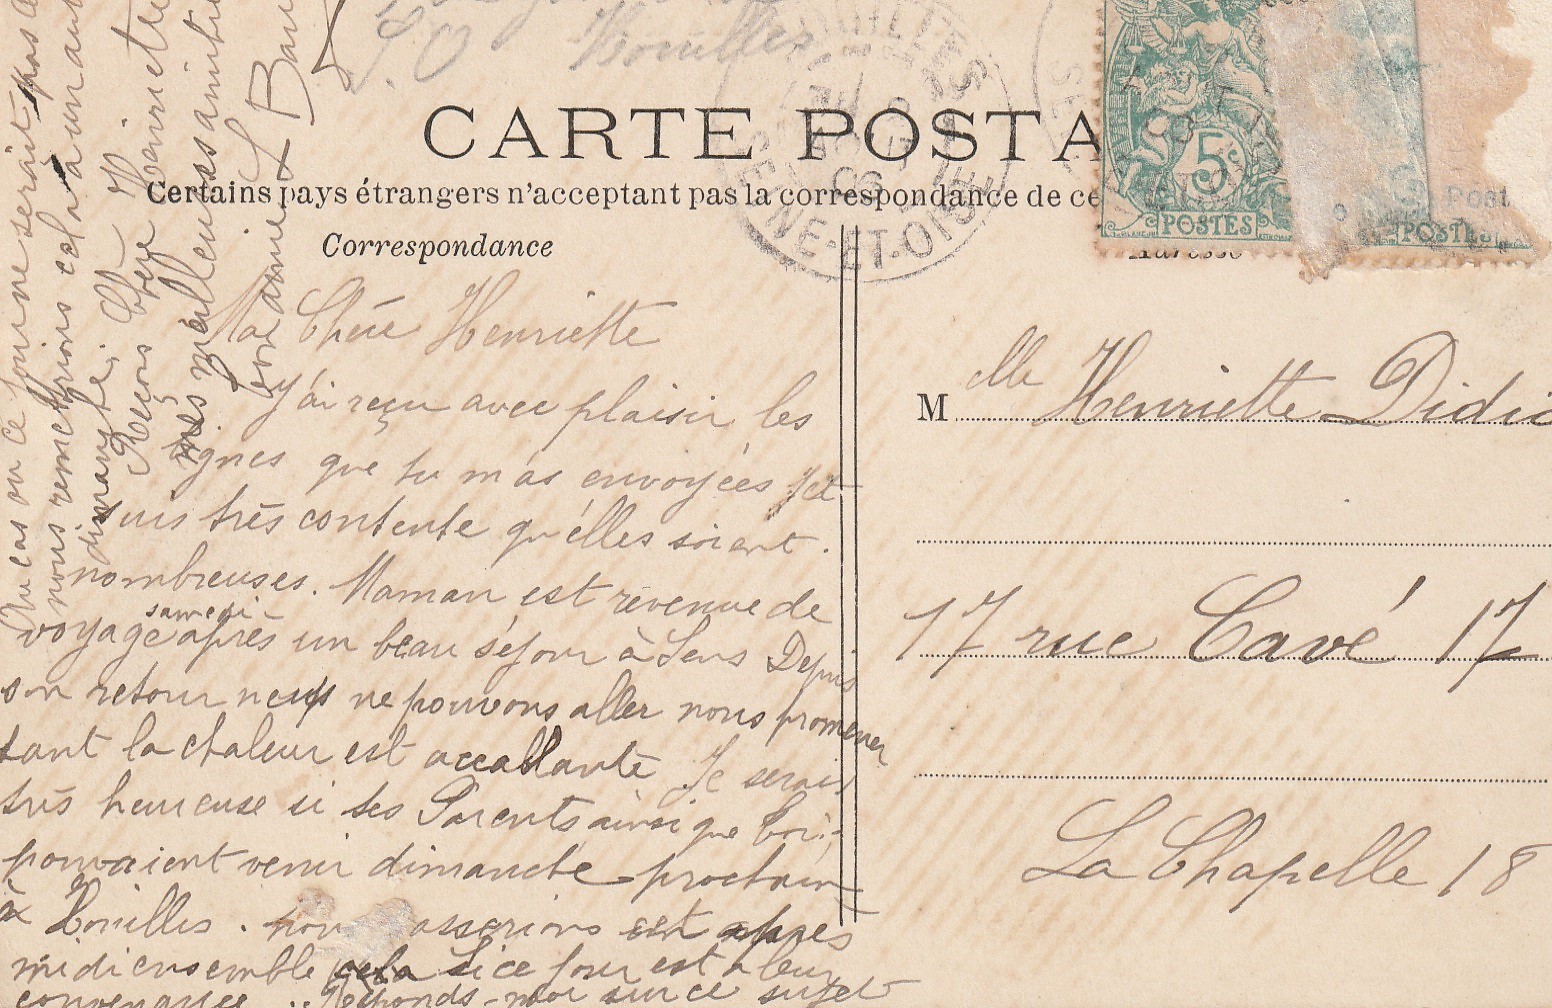 S. O Houilles
CARTE POSTA
Certains pays étrangers n'acceptent pas la correspondance de ce
Correspondance
Adresse
5c
POSTES
POSTES
Post
HOUILLES
SEINE-ET-OISE
Ma Chère Henriette
J'ai reçu avec plaisir les
lignes que tu m'as envoyées et
suis très contente qu'elles soient
nombreuses. Maman est revenue de
voyage samedi après un beau séjour à Sens Depuis
son retour nous ne pouvons aller nous promener
tant la chaleur est accablante Je serais
très heureuse si tes Parents ainsi que toi
pouvaient venir dimanche prochain
à Houilles. nous passerions cet après
midi ensemble si ce jour est à leur
convenance. Réponds-moi sur ce sujet
Au cas ou ce jour ne serait pas
nous remettrions cela à un autre
dimanche.
Reçois Chère Henriette
mes meilleurs amitiés
Ton amie
L Bau
M elle Henriette Didi
17 rue Cavé 17
La Chapelle 18